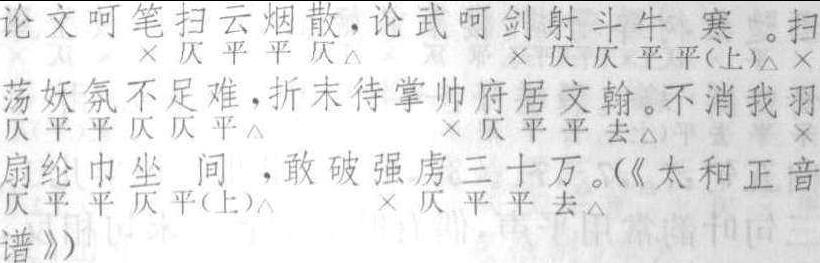 论文呵笔扫云烟散，论武呵剑射斗牛 寒 。扫
× 仄 平 平 仄△ × 仄 仄 平 平(上)△ ×
荡妖氛不足难，折末待掌帅府居文翰。不消我羽
仄 平 平 仄 仄 平△ × 仄 平 平 去△ ×
扇纶巾坐 间 ，敢破强虏三十万。(《太和正音
仄 平 平 仄 平(上)△ × 仄 平 平 去△
谱》)